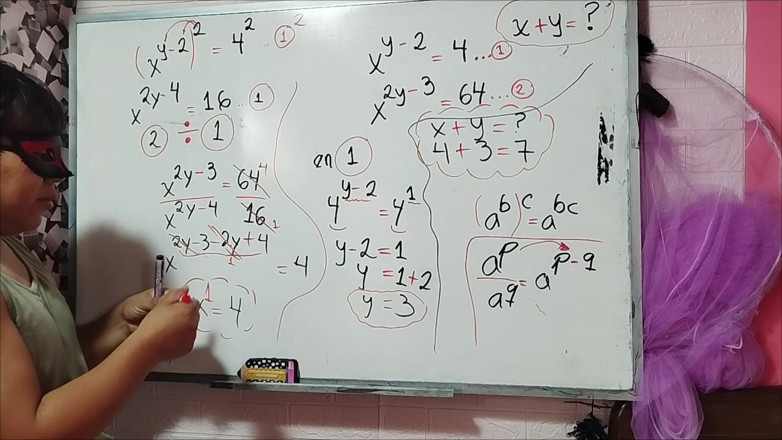 (x^{y-2})^2 = 4^2 ①^2
x^{2y-4} = 16 ... ①
② ÷ ①
x^{2y-3} = 64 4
x^{2y-4} 16 1
x^{2y-3-2y+4} = 4
1
x^1 = 4
x+y = ?
x^{y-2} = 4 ... ①
x^{2y-3} = 64 ... ②
x+y = ?
4+3 = 7
en ①
4^{y-2} = 4^1
y-2 = 1
y = 1+2
y = 3
(a^b)^c = a^{bc}
a^p
a^q = a^{p-q}